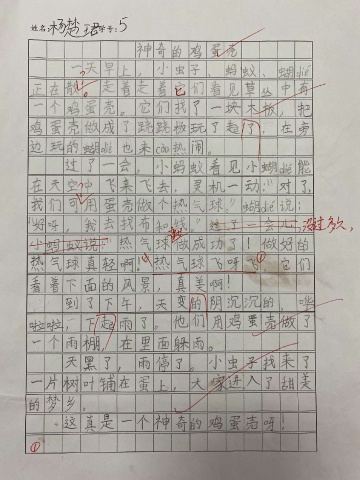 姓名:杨楚珺学号:5
神奇的鸡蛋壳
一天早上,小虫子、蚂蚁、蝴dié
正在散。走着走着它们看见草丛中有
一个鸡蛋壳。它们找了一块木板,把
鸡蛋壳做成了跷跷板玩了起了,在旁
边玩的蝴dié也来còu热闹。
过了一会,小蚂蚁看见小蝴dié能
在天空中飞来飞去,灵机一动:"对了,
我们可用蛋壳做个热气球。"蝴dié说:
"好呀,我去找布和线。"过了一会儿,没过多久,
小蚂蚁说:"热气球做成功了!做好的
热气球真轻啊!热气球飞呀飞①它们
看着下面的风景,真美啊!
到了下午,天变的阴沉沉的,哗
啦啦,下起雨了。他们用鸡蛋壳做了
一个雨棚,在里面躲雨。
天黑了,雨停了。小虫子找来了
一片树叶铺在蛋上,大家进入了甜美
的梦乡。
这真是一个神奇的鸡蛋壳呀!
①